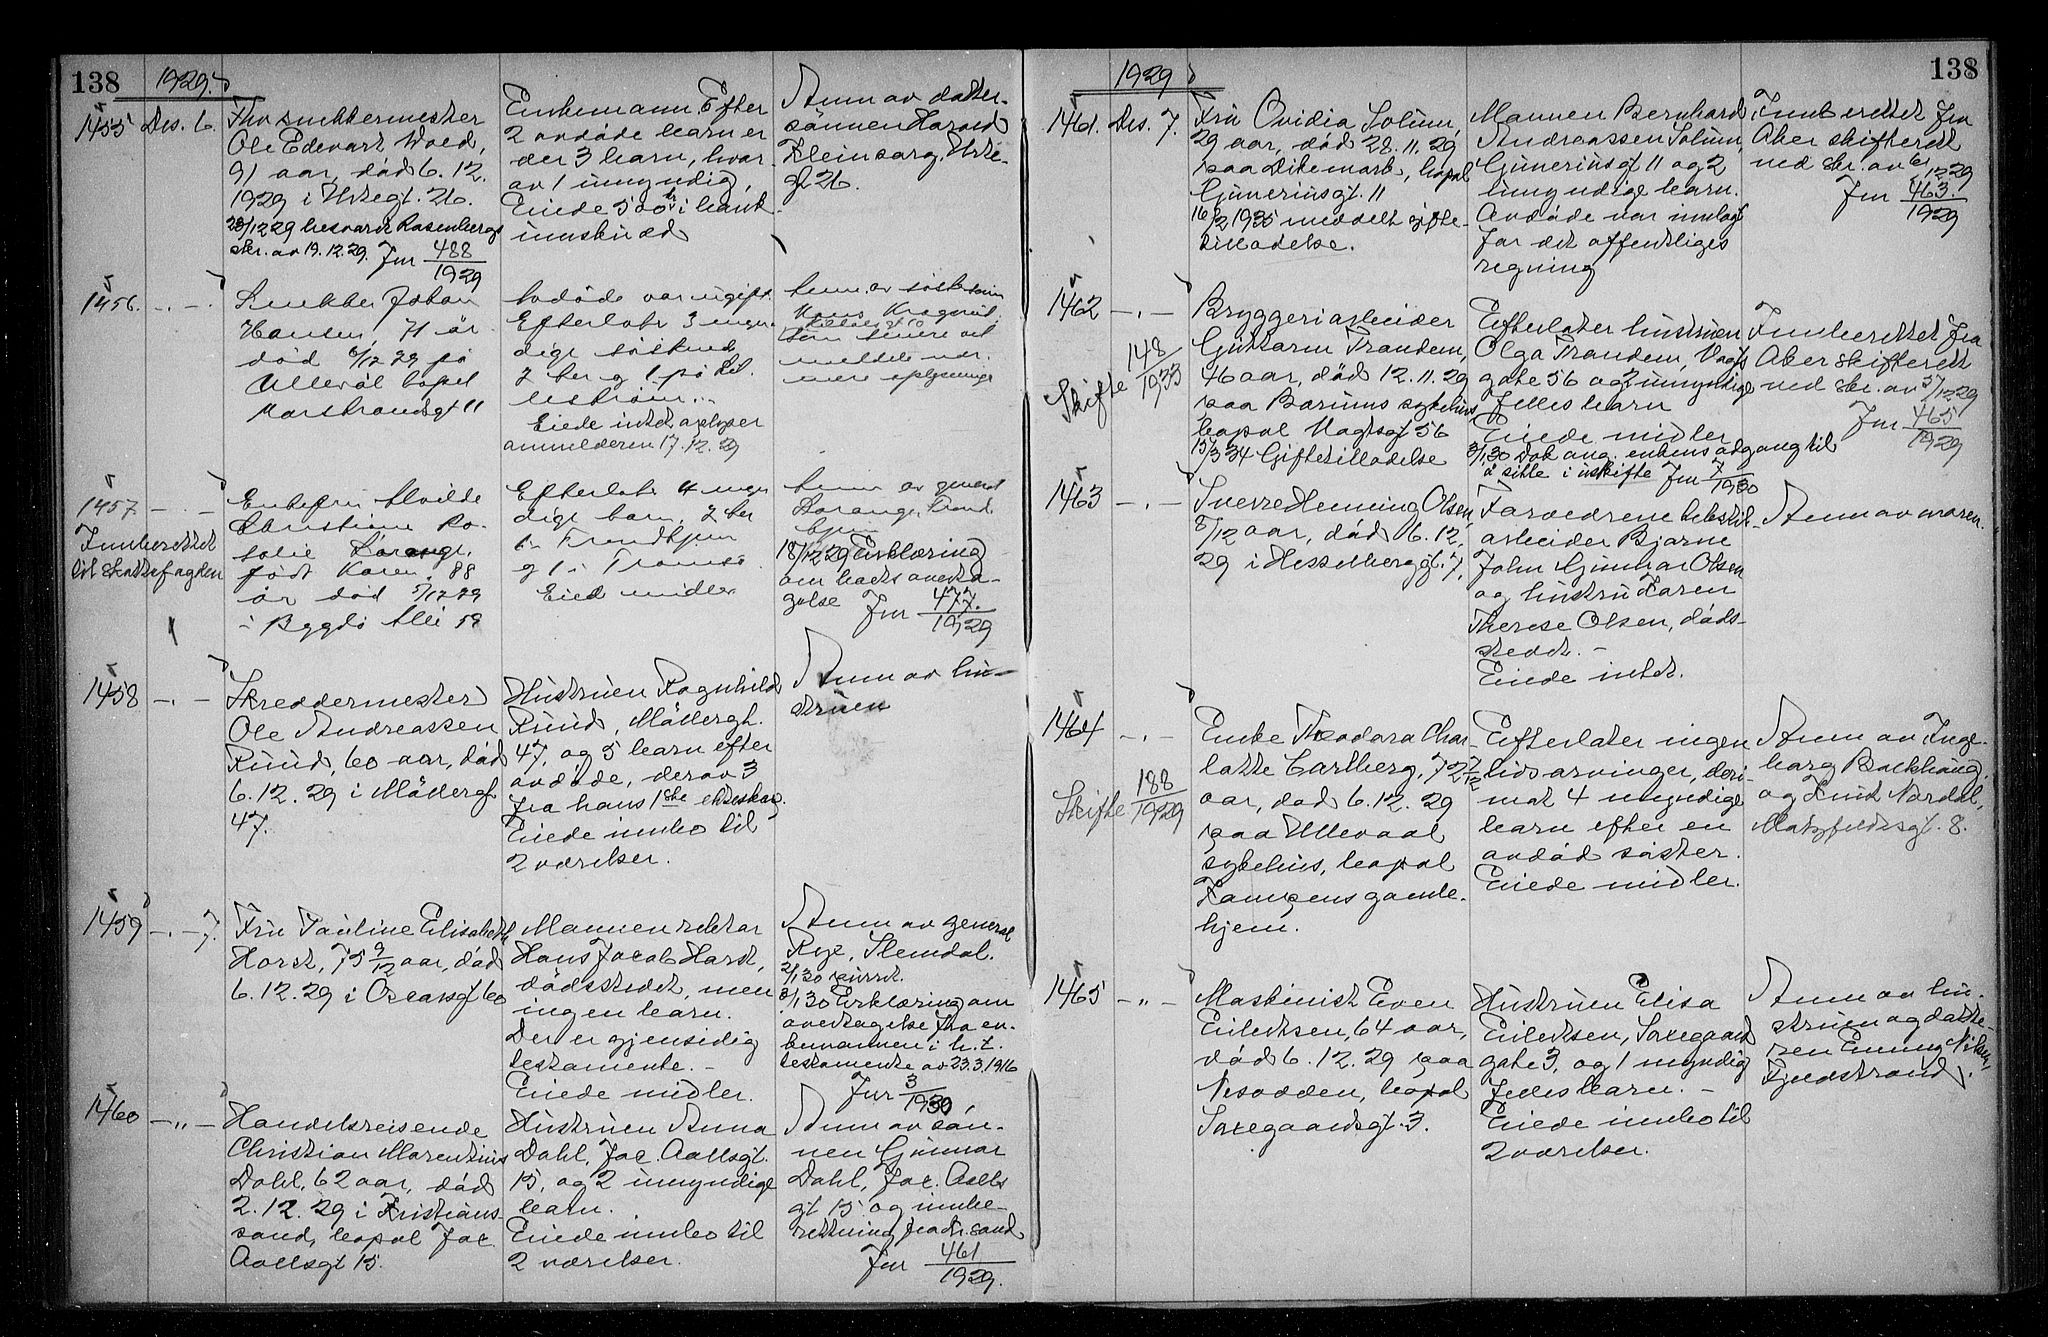 138
1929.
1455
Des. 6.
Fhv snekkermester
Ole Edevart Wold,
91 aar, död 6.12.
1929 i Urtegt. 26.
28/12 29 besvart Rosenbergs
skr. av 19.12.29. Jnr 488
1929
Enkemann. Efter
2 avdöde barn er
der 3 barn, hvor-
av 1 umyndig,
Eiede 500 kr i bank-
innskudd
Anm av datter-
sönnen Harald
Kleinsorg, Urte-
gt 26.
1456. -.-.
Snekker Johan
Hansen, 71 år
död 6/12 29 på
Ullevål bopel
Markvandsgt 11
Avdöde var ugift.
Efterlot 3 myn-
dige söskend
2 her og 1 på Lil-
leström..
Eiede intet oplyser
anmelderen 17.12.29
Anm. av
Hans
som senere vil
meddele nær-
mere oplysninger
1457 -.-
Innberettet
til skattefogden
Enkefru Alvilde
Christiane Ro-
salie Lorange,
född Koren, 88
år död 5/12 29
i Bygdö Allé 59
Efterlot 4 myn
dige barn, 2 her
1 i Trondhjem
og 1 i Tromsö.
Eied midler
Anm av general
Lorange, Trond
hjem
18/12 29 Erklæring
om boets overta-
gelse Jnr 477.
1929
1458 -.-
Skreddermester
Ole Andreassen
Ruud, 60 aar, död
6.12.29 i Möllergt
47.
Hustruen Ragnhild
Ruud, Möllergt.
47, og 5 barn efter
avdöde, derav 3
fra hans 1ste ekteskap.
Eiede innbo til
2 værelser.
Anm av hu-
struen
1459 -.- 7.
Fru Pauline Elisabeth
Horst, 75 9/12 aar, död
6.12.29 i Oscarsgt 60
Mannen rektor
Hans Jacob Horst,
dödsstedet, men
ingen barn.
Der er gjensidig
testamente.-
Eiede midler.
Anm av general
Rye, Slemdal.
2/1 30 purret.
3/1 30 Erklæring om
overtagelse fra en-
kemannen i h.t.
testamente av 23.3.1916
Jnr 3
1930
1460 -"-
Handelsreisende
Christian Marentius
Dahl, 62 aar, död
2.12.29 i Kristians-
sand, bopel Jac.
Aallsgt 15.
Hustruen Anna
Dahl, Jac. Aallsgt.
15, og 2 umyndige
barn.
Eiede innbo til
2 værelser.
Anm av sön-
nen Gunnar
Dahl, Jac. Aalls
gt 15 og innbe-
retning fra Kr.sand
Jnr 461
1929.
138
1929
1461. Des. 7.
Fru Ovidia Solum,
29 aar, död 28.11.29
paa Dikemark, bopel
Guneriusgt. 11
16/2 1935 meddelt gifte-
tilladelse.
Mannen Bernhard
Andreassen Solum,
Guneriusgt 11 og 2
umyndige barn.
Avdöde var innlagt
for det offentliges
regning
Innberettet fra
Aker skifterett
ved skr. av 6/12 29
Jnr 463.
1929
1462 -.-
Skifte 148
1933
Bryggeriarbeider
Guttorm Trandem,
46 aar, död 12.11.29
paa Bærums sykehus
bopel Vogtsgt 56
15/3 34 Giftetilladelse
Efterlater hustruen
Olga Trandem, Vogts
gate 56 og 2 umyndige
felles barn
Eiede midler
3/1 30 Dok ang. enkens adgang til
å sitte i uskifte Jnr 7
1930
Innberettet fra
Aker skifterett
ved skr. av 5/12 29
Jnr 465
1929
1463 -.-
Sverre Henning Olsen,
5/12 aar, död 6.12.
29 i Hesselberggt. 7.
Forældrene tekstil-
arbeider Bjarne
John Gunnar Olsen
og hustru Karen
Therese Olsen, döds-
stedet.-
Eiede intet.
Anm av moren.
1464 -.-
Skifte 188
1929
Enke Theodora Char-
lotte Carlberg, 72 7/12
aar, död 6.12.29
paa Ullevaal
sykehus, bopel
Kampens gamle-
hjem.
Efterlater ingen
livsarvinger, deri-
mot 4 myndige
barn efter en
avdöd söster.
Eiede midler.
Anm av Inge-
borg Backhaug
og Knut Nordal,
Motzfeldtsgt. 8.
1465 -"-
Maskinist Even
Eilertsen, 64 aar,
död 6.12.29 paa
Nesodden, bopel
Saxegaardsgt. 3.
Hustruen Elisa
Eilertsen, Saxegaard
gate 3, og 1 myndig
felles barn.-
Eiede innbo til
2 værelser.
Anm av hu-
struen og datte-
ren Emmy Nilsen,
Fjeldstrand.